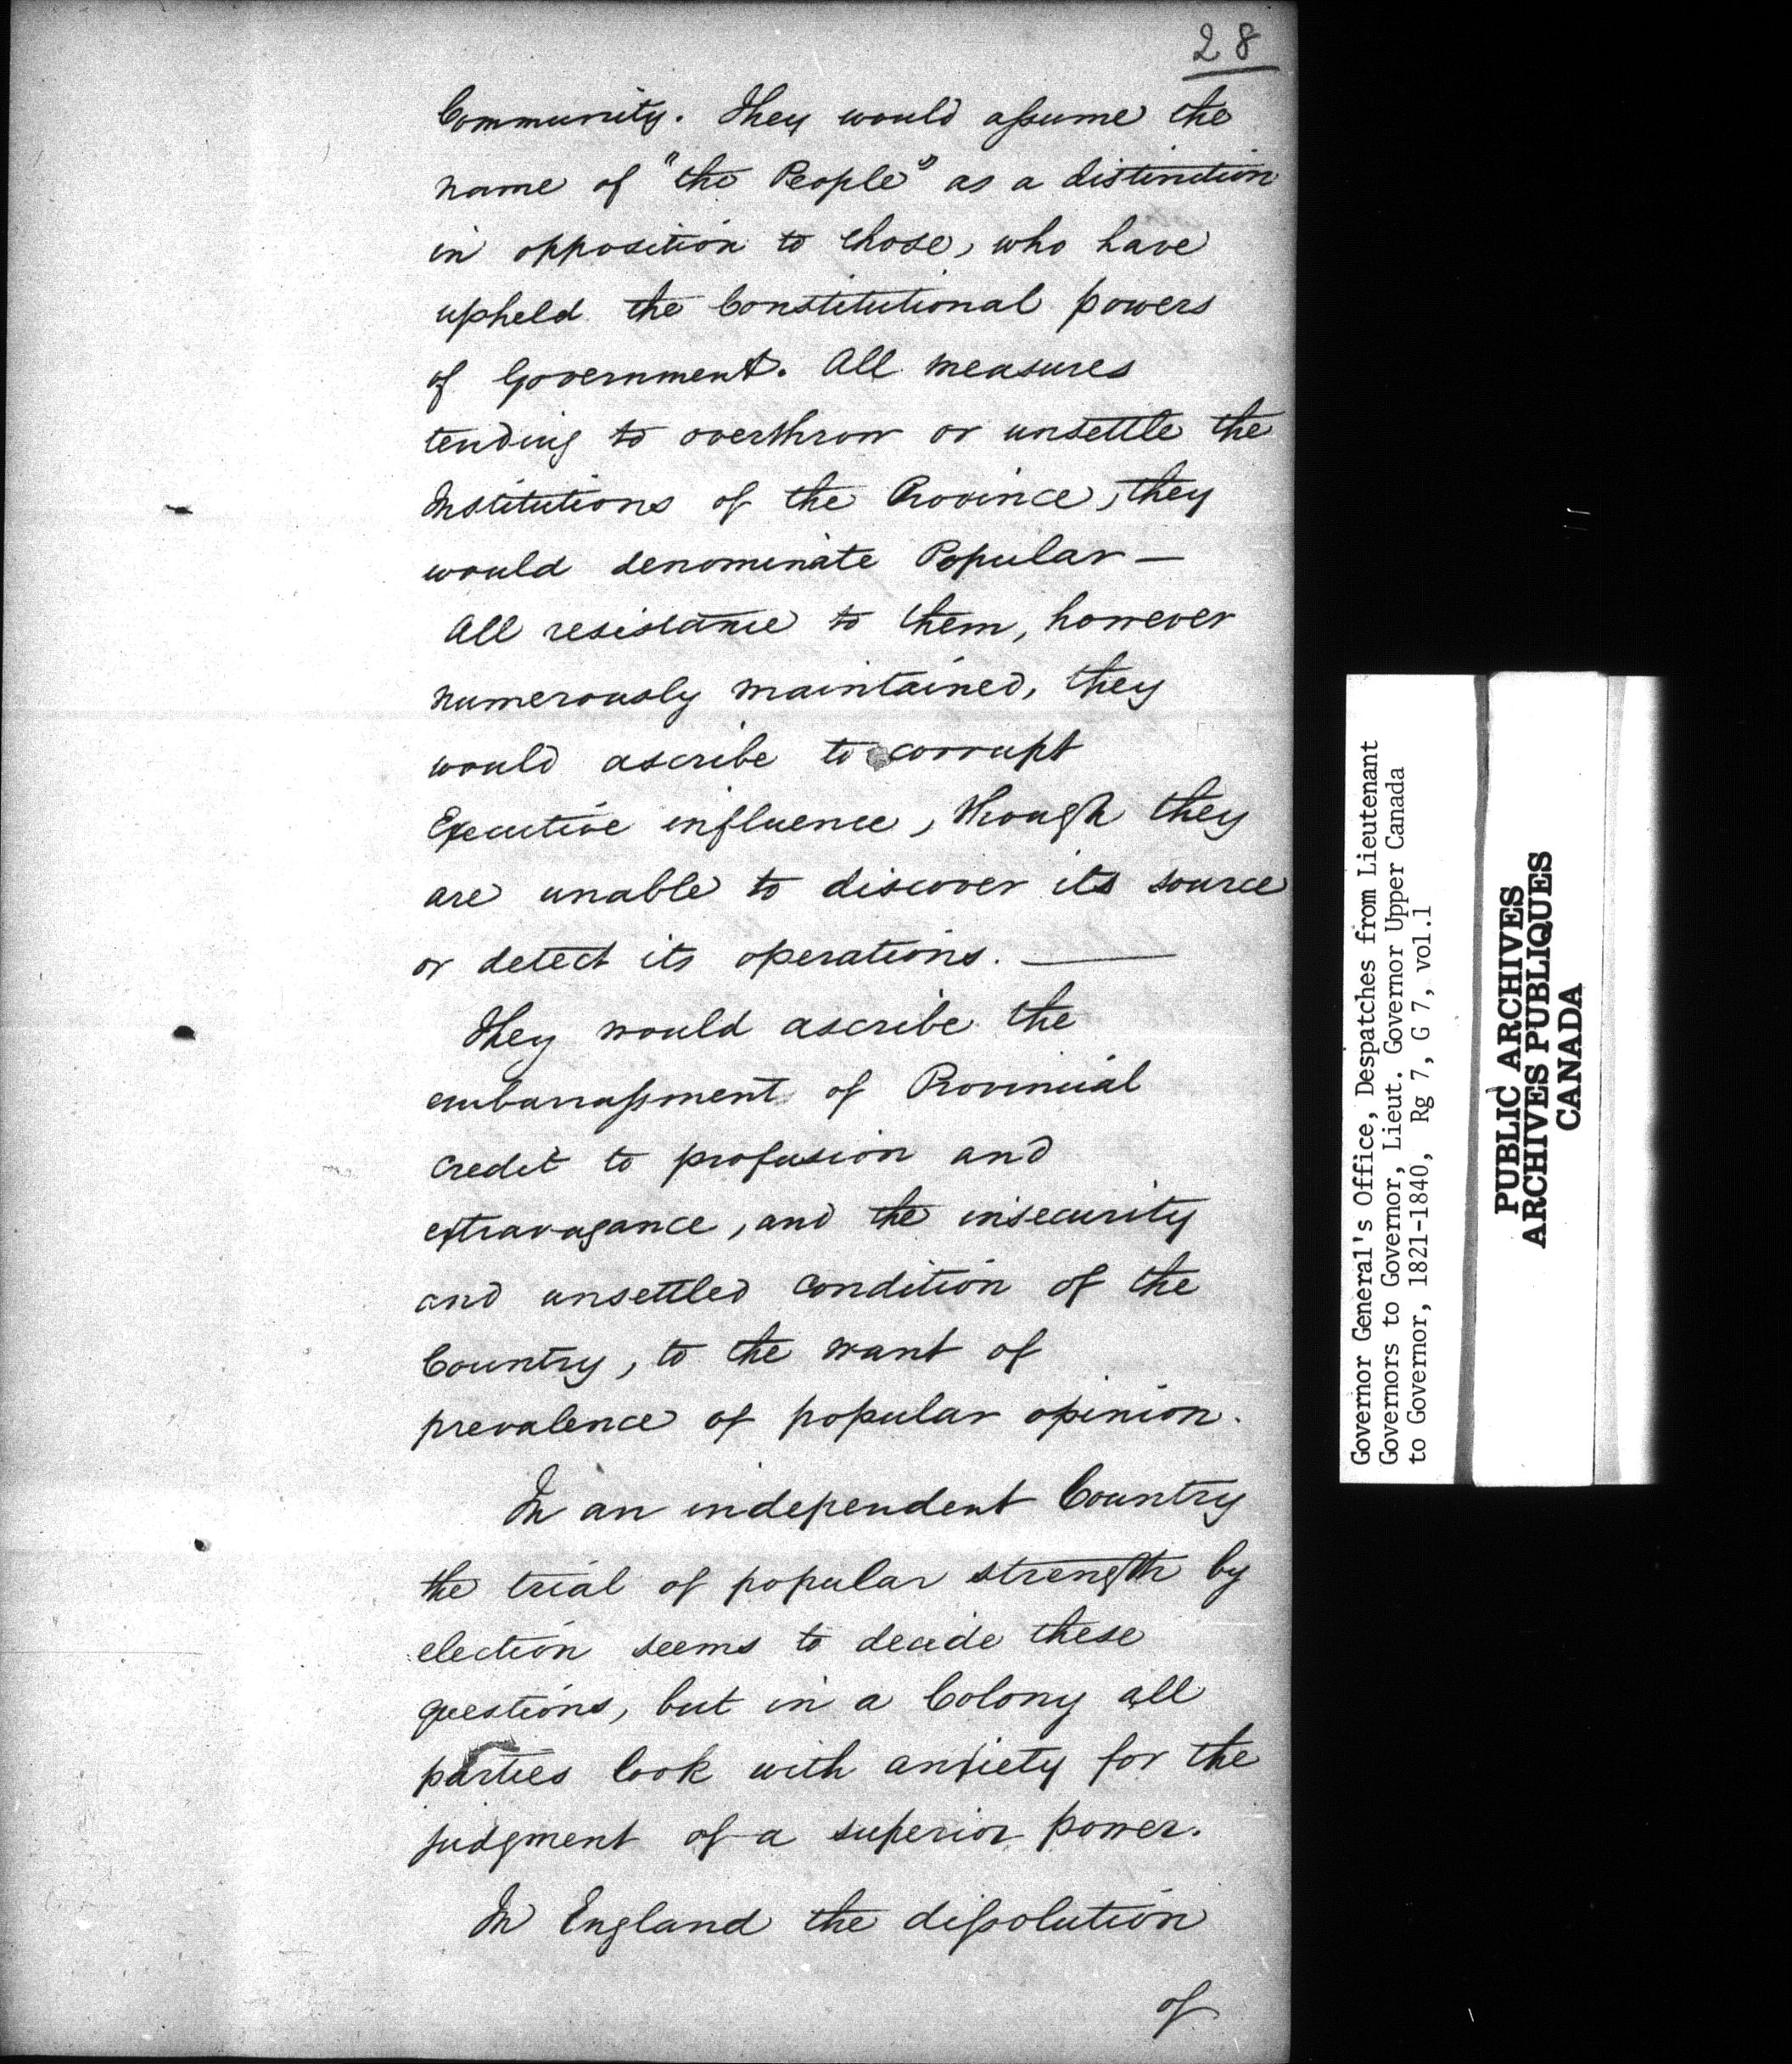 28
Community. They would assume the
name of "the People" as a distinction
in opposition to those, who have
upheld the Constitutional powers
of Government. All measures
tending to overthrow or unsettle the
Institutions of the Province, they
would denominate Popular —
All resistance to them, however
numerously maintained, they
would ascribe to corrupt
Executive influence, though they
are unable to discover its source
or detect its operations. —
They would ascribe the
embarrassment of Provincial
credit to profusion and
extravagance, and the insecurity
and unsettled condition of the
Country, to the want of
prevalence of popular opinion.
In an independent Country
the trial of popular strength by
election seems to decide these
questions, but in a Colony all
parties look with anxiety for the
judgment of a superior power.
In England the dissolution
of
Governor General's Office, Despatches from Lieutenant
Governors to Governor, Lieut. Governor Upper Canada
to Governor, 1821-1840, Rg 7, G 7, vol.1
PUBLIC ARCHIVES
ARCHIVES PUBLIQUES
CANADA